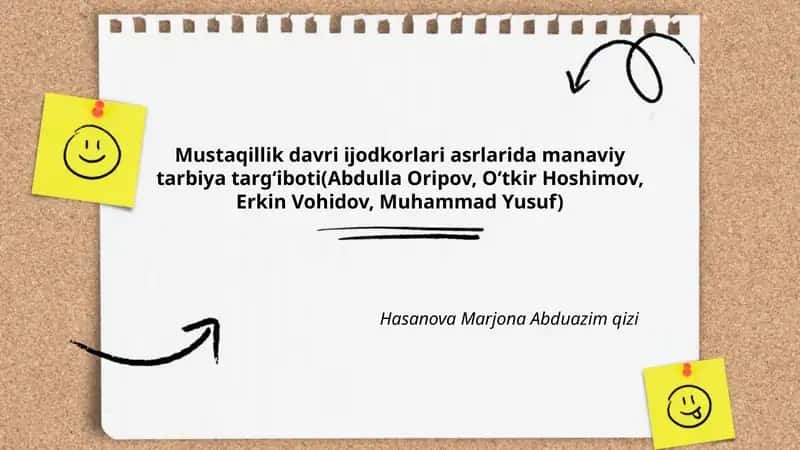 Mustaqillik davri ijodkorlari asrlarida manaviy
tarbiya targ‘iboti(Abdulla Oripov, O‘tkir Hoshimov,
Erkin Vohidov, Muhammad Yusuf)
Hasanova Marjona Abduazim qizi